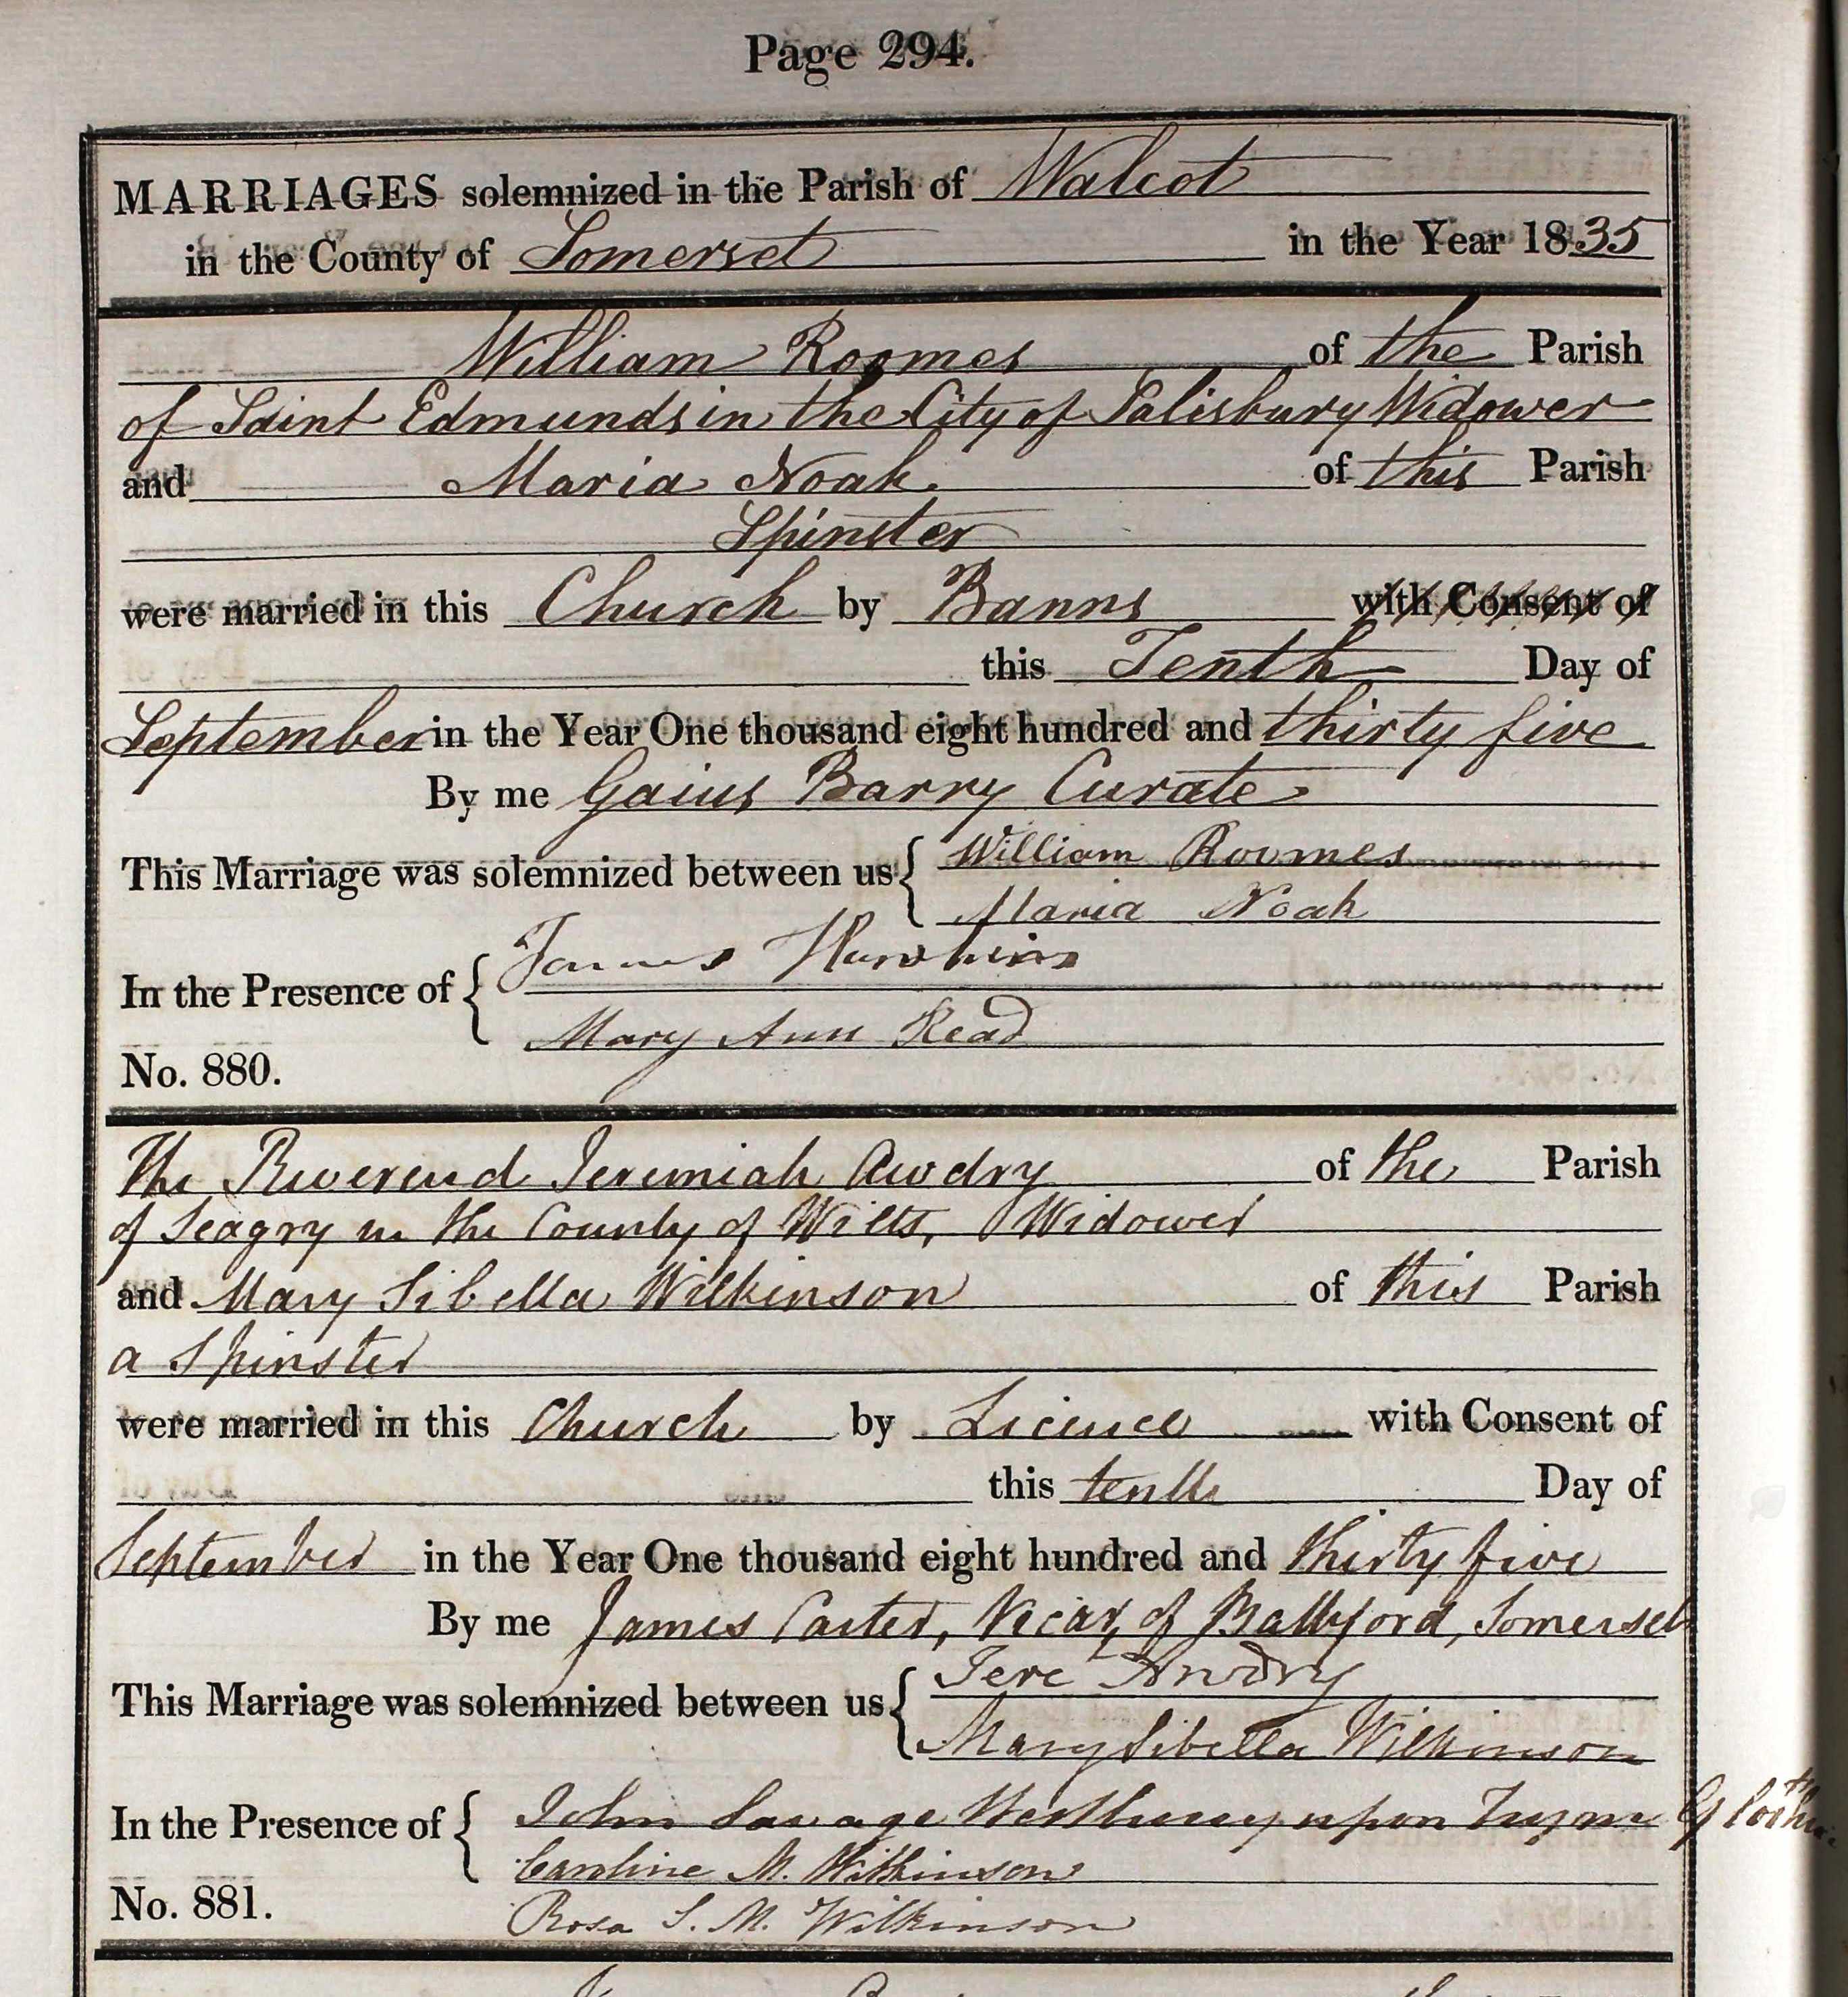 Page 294.
MARRIAGES solemnized in the Parish of Walcot
in the County of Somerset in the Year 1835
William Roomes of the Parish
of Saint Edmunds in the City of Salisbury Widower
and Maria Noah of this Parish
Spinster
were married in this Church by Banns with Consent of
this Tenth Day of
September in the Year One thousand eight hundred and thirty five
By me Gaius Barry Curate
This Marriage was solemnized between us { William Roomes
Maria Noah
In the Presence of { James Hawkins
Mary Ann Read
No. 880.
The Reverend Jeremiah Awdry of the Parish
of Seagry in the County of Wilts, Widower
and Mary Sibella Wilkinson of this Parish
a Spinster
were married in this Church by Licence with Consent of
this tenth Day of
September in the Year One thousand eight hundred and thirty five
By me James Carter, Vicar of Bathford, Somerset
This Marriage was solemnized between us { Jere Awdry
Mary Sibella Wilkinson
In the Presence of { John Savage Westbury upon Trym
Caroline M. Wilkinson
Rosa S. M. Wilkinson
No. 881.